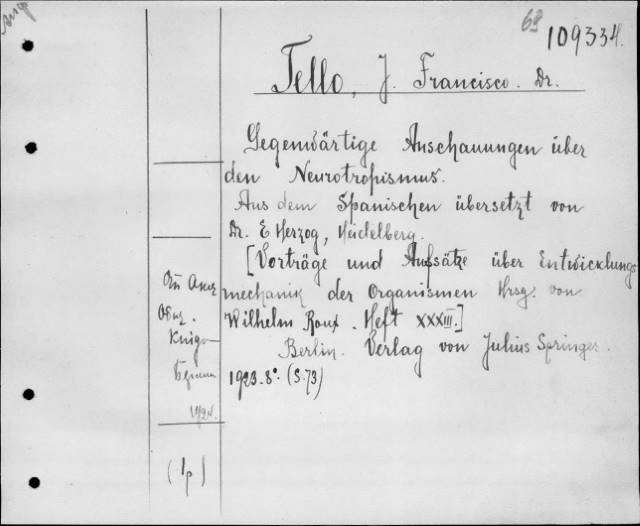 68
109334.
Tello, J. Francisco. Dr.
Gegenwärtige Anschauungen über
den Neurotropismus.
Aus dem Spanischen übersetzt von
Dr. E Herzog, Heidelberg.
[Vorträge und Aufsätze über Entwicklungs
mechanik der Organismen Hrsg. von
Wilhelm Roux. Heft XXXIII.]
Berlin. Verlag von Julius Springer.
1923. 8°. (S. 73)
Книго
(1p)